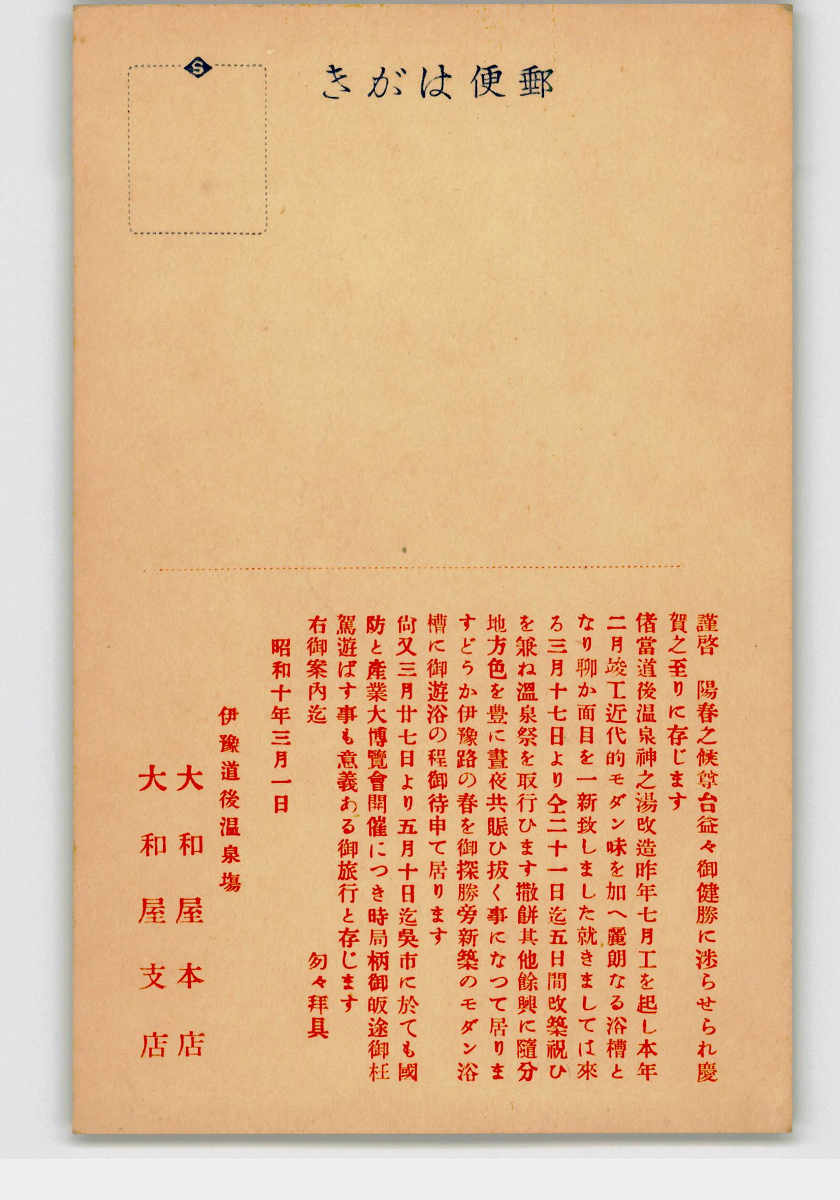 郵便はがき
S
謹啓　陽春之候尊台益々御健勝に渉らせられ慶
賀之至りに存じます
偖當道後温泉神之湯改造昨年七月工を起し本年
二月竣工近代的モダン味を加へ麗朗なる浴槽と
なり聊か面目を一新致しました就きましては來
る三月十七日より仝二十一日迄五日間改築祝ひ
を兼ね溫泉祭を取行ひます撒餅其他餘興に隨分
地方色を豊に晝夜共賑ひ拔く事になつて居りま
すどうか伊豫路の春を御探勝旁新築のモダン浴
槽に御遊浴の程御待申て居ります
尙又三月廿七日より五月十日迄吳市に於ても國
防と産業大博覽會開催につき時局柄御皈途御枉
駕遊ばす事も意義ある御旅行と存じます
右御案內迄　　　　　　　　　匆々拜具
昭和十年三月一日
伊豫道後温泉塲
大和屋本店
大和屋支店